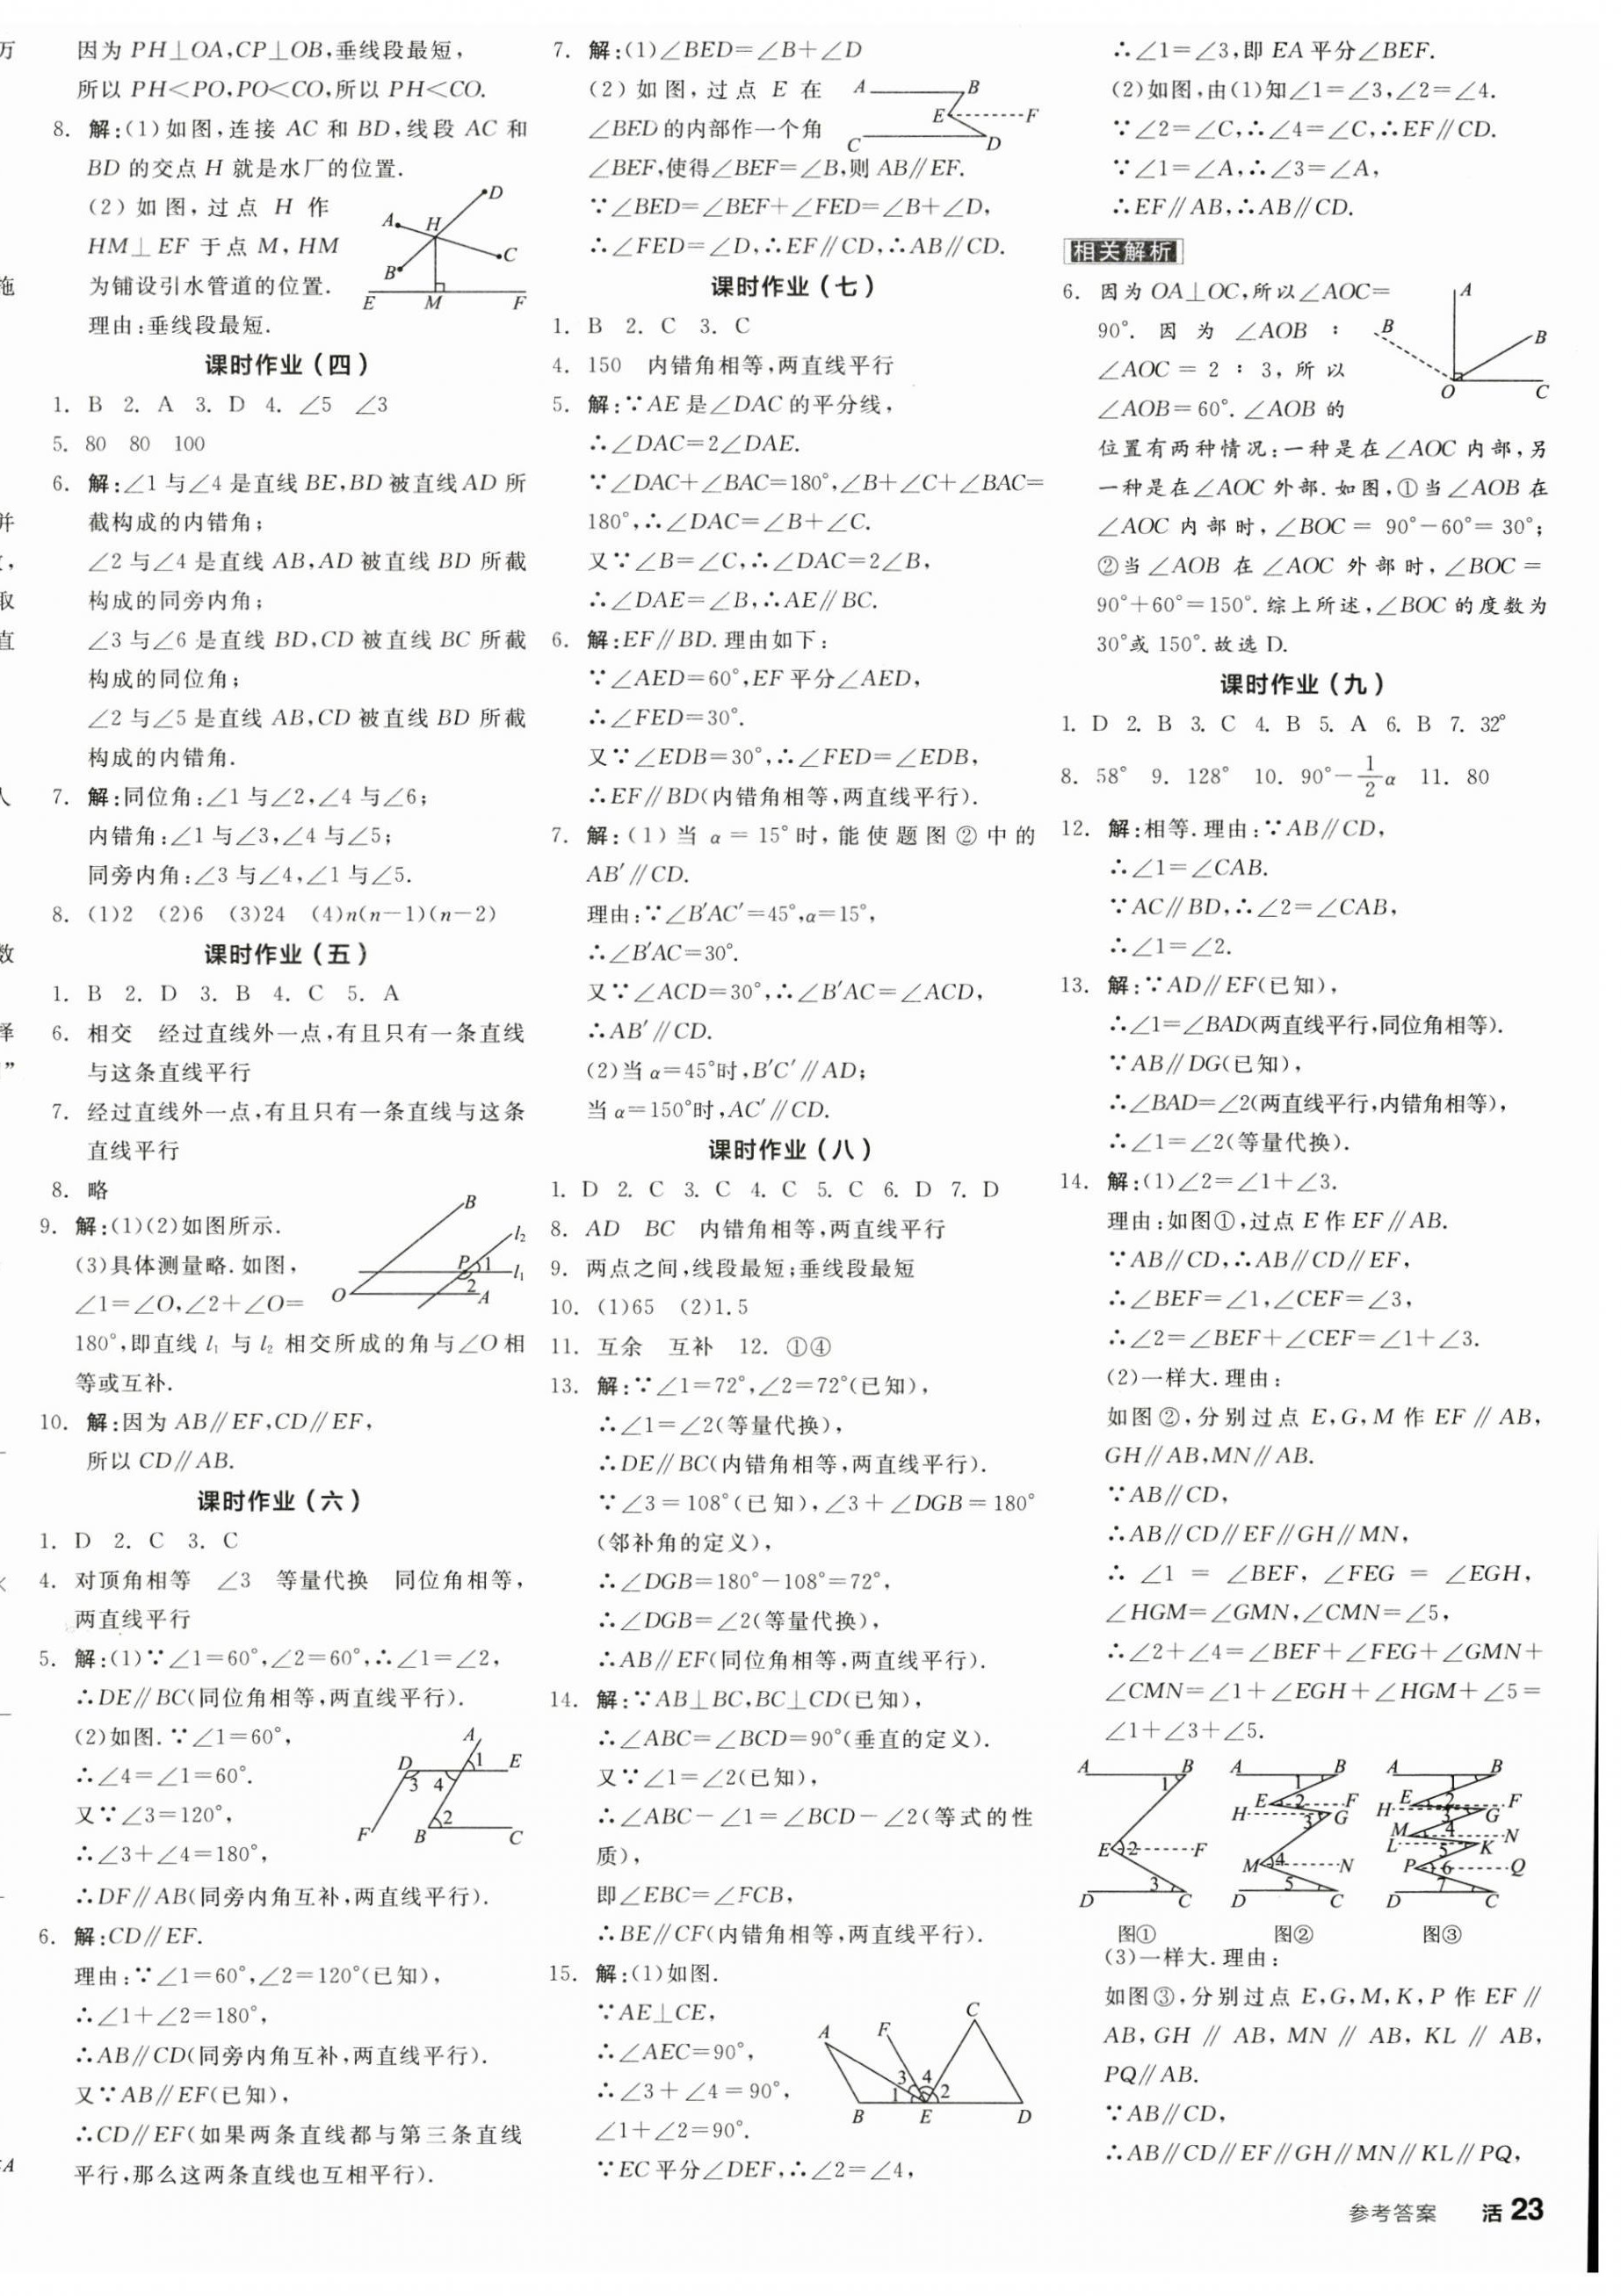 因为 PH⊥OA,CP⊥OB,垂线段最短,
所以 PH<PO,PO<CO,所以 PH<CO.
8. 解:(1)如图,连接 AC 和 BD,线段 AC 和
BD 的交点 H 就是水厂的位置.
(2)如图,过点 H 作
HM⊥EF 于点 M,HM
为铺设引水管道的位置.
理由:垂线段最短.
A D H B C E M F
课时作业(四)
1. B 2. A 3. D 4. ∠5 ∠3
5. 80 80 100
6. 解:∠1 与∠4 是直线 BE,BD 被直线 AD 所
截构成的内错角;
∠2 与∠4 是直线 AB,AD 被直线 BD 所截
构成的同旁内角;
∠3 与∠6 是直线 BD,CD 被直线 BC 所截
构成的同位角;
∠2 与∠5 是直线 AB,CD 被直线 BD 所截
构成的内错角.
7. 解:同位角:∠1 与∠2,∠4 与∠6;
内错角:∠1 与∠3,∠4 与∠5;
同旁内角:∠3 与∠4,∠1 与∠5.
8. (1)2 (2)6 (3)24 (4)n(n-1)(n-2)
课时作业(五)
1. B 2. D 3. B 4. C 5. A
6. 相交 经过直线外一点,有且只有一条直线
与这条直线平行
7. 经过直线外一点,有且只有一条直线与这条
直线平行
8. 略
9. 解:(1)(2)如图所示.
(3)具体测量略.如图,
∠1=∠O,∠2+∠O=
180°,即直线 l₁ 与 l₂ 相交所成的角与∠O 相
等或互补.
B l₂ P 1 l₁ 2 O A
10. 解:因为 AB∥EF,CD∥EF,
所以 CD∥AB.
课时作业(六)
1. D 2. C 3. C
4. 对顶角相等 ∠3 等量代换 同位角相等,
两直线平行
5. 解:(1)∵∠1=60°,∠2=60°,∴∠1=∠2,
∴DE∥BC(同位角相等,两直线平行).
(2)如图.∵∠1=60°,
∴∠4=∠1=60°.
又∵∠3=120°,
∴∠3+∠4=180°,
∴DF∥AB(同旁内角互补,两直线平行).
A D 1 E 3 4 2 F B C
6. 解:CD∥EF.
理由:∵∠1=60°,∠2=120°(已知),
∴∠1+∠2=180°,
∴AB∥CD(同旁内角互补,两直线平行).
又∵AB∥EF(已知),
∴CD∥EF(如果两条直线都与第三条直线
平行,那么这两条直线也互相平行).
7. 解:(1)∠BED=∠B+∠D
(2)如图,过点 E 在
∠BED 的内部作一个角
∠BEF,使得∠BEF=∠B,则 AB∥EF.
∵∠BED=∠BEF+∠FED=∠B+∠D,
∴∠FED=∠D,∴EF∥CD,∴AB∥CD.
A B E F C D
课时作业(七)
1. B 2. C 3. C
4. 150 内错角相等,两直线平行
5. 解:∵AE 是∠DAC 的平分线,
∴∠DAC=2∠DAE.
∵∠DAC+∠BAC=180°,∠B+∠C+∠BAC=
180°,∴∠DAC=∠B+∠C.
又∵∠B=∠C,∴∠DAC=2∠B,
∴∠DAE=∠B,∴AE∥BC.
6. 解:EF∥BD.理由如下:
∵∠AED=60°,EF 平分∠AED,
∴∠FED=30°.
又∵∠EDB=30°,∴∠FED=∠EDB,
∴EF∥BD(内错角相等,两直线平行).
7. 解:(1)当 α=15°时,能使题图②中的
AB′∥CD.
理由:∵∠B′AC′=45°,α=15°,
∴∠B′AC=30°.
又∵∠ACD=30°,∴∠B′AC=∠ACD,
∴AB′∥CD.
(2)当 α=45°时,B′C′∥AD;
当 α=150°时,AC′∥CD.
课时作业(八)
1. D 2. C 3. C 4. C 5. C 6. D 7. D
8. AD BC 内错角相等,两直线平行
9. 两点之间,线段最短;垂线段最短
10. (1)65 (2)1.5
11. 互余 互补 12. ①④
13. 解:∵∠1=72°,∠2=72°(已知),
∴∠1=∠2(等量代换),
∴DE∥BC(内错角相等,两直线平行).
∵∠3=108°(已知),∠3+∠DGB=180°
(邻补角的定义),
∴∠DGB=180°-108°=72°,
∴∠DGB=∠2(等量代换),
∴AB∥EF(同位角相等,两直线平行).
14. 解:∵AB⊥BC,BC⊥CD(已知),
∴∠ABC=∠BCD=90°(垂直的定义).
又∵∠1=∠2(已知),
∴∠ABC-∠1=∠BCD-∠2(等式的性
质),
即∠EBC=∠FCB,
∴BE∥CF(内错角相等,两直线平行).
15. 解:(1)如图.
∵AE⊥CE,
∴∠AEC=90°,
∴∠3+∠4=90°,
∠1+∠2=90°.
∵EC 平分∠DEF,∴∠2=∠4,
A F C 3 4 1 2 B E D
∴∠1=∠3,即 EA 平分∠BEF.
(2)如图,由(1)知∠1=∠3,∠2=∠4.
∵∠2=∠C,∴∠4=∠C,∴EF∥CD.
∵∠1=∠A,∴∠3=∠A,
∴EF∥AB,∴AB∥CD.
相关解析
6. 因为 OA⊥OC,所以∠AOC=
90°. 因为 ∠AOB :
∠AOC = 2 : 3,所以
∠AOB=60°.∠AOB 的
位置有两种情况:一种是在∠AOC 内部,另
一种是在∠AOC 外部.如图,①当∠AOB 在
∠AOC 内部时,∠BOC = 90°-60°=30°;
②当∠AOB 在∠AOC 外部时,∠BOC =
90°+60°=150°.综上所述,∠BOC 的度数为
30°或 150°.故选 D.
A B B O C
课时作业(九)
1. D 2. B 3. C 4. B 5. A 6. B 7. 32°
8. 58° 9. 128° 10. 90°-1/2α 11. 80
12. 解:相等.理由:∵AB∥CD,
∴∠1=∠CAB.
∵AC∥BD,∴∠2=∠CAB,
∴∠1=∠2.
13. 解:∵AD∥EF(已知),
∴∠1=∠BAD(两直线平行,同位角相等).
∵AB∥DG(已知),
∴∠BAD=∠2(两直线平行,内错角相等),
∴∠1=∠2(等量代换).
14. 解:(1)∠2=∠1+∠3.
理由:如图①,过点 E 作 EF∥AB.
∵AB∥CD,∴AB∥CD∥EF,
∴∠BEF=∠1,∠CEF=∠3,
∴∠2=∠BEF+∠CEF=∠1+∠3.
(2)一样大.理由:
如图②,分别过点 E,G,M 作 EF∥AB,
GH∥AB,MN∥AB.
∵AB∥CD,
∴AB∥CD∥EF∥GH∥MN,
∴∠1 = ∠BEF, ∠FEG = ∠EGH,
∠HGM=∠GMN,∠CMN=∠5,
∴∠2+∠4=∠BEF+∠FEG+∠GMN+
∠CMN=∠1+∠EGH+∠HGM+∠5=
∠1+∠3+∠5.
A B 1 E 2 F 3 D C
A B 1 E 2 F H 3 G M 4 N 5 D C
A B 1 E 2 F H 3 G M 4 N L 5 K P 6 Q 7 D C
图① 图② 图③
(3)一样大.理由:
如图③,分别过点 E,G,M,K,P 作 EF∥
AB,GH∥AB,MN∥AB,KL∥AB,
PQ∥AB.
∵AB∥CD,
∴AB∥CD∥EF∥GH∥MN∥KL∥PQ,
参考答案 活 23